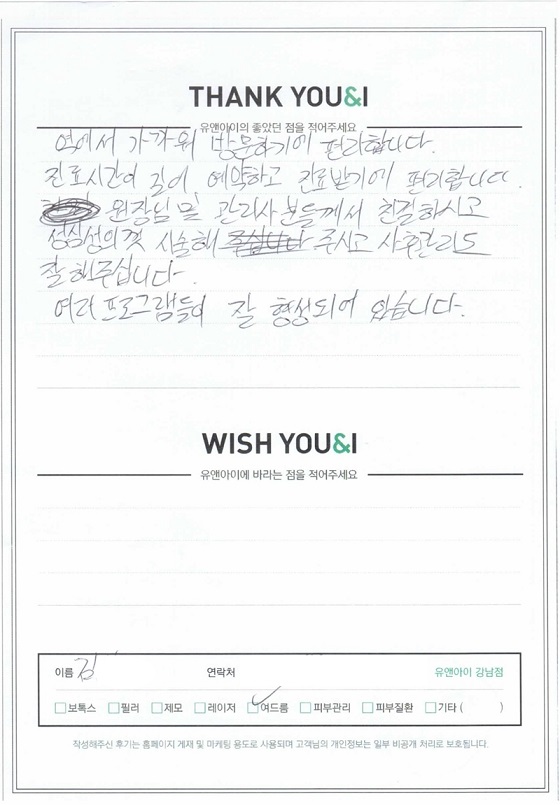 THANK YOU&I
유앤아이의 좋았던 점을 적어주세요
역에서 가까워 방문하기에 편리합니다.
진료시간이 길어, 예약하고 진료받기에 편리합니다.
원장님 및 관리사 분들께서 친절하시고
성심성의껏 시술해 주십니다 주시고 사후관리도
잘 해주십니다.
여러 프로그램들이 잘 형성되어 있습니다.
WISH YOU&I
유앤아이에 바라는 점을 적어주세요
이름 김 연락처 유앤아이 강남점
보톡스 필러 제모 레이저 여드름 피부관리 피부질환 기타 ( )
작성해주신 후기는 홈페이지 게재 및 마케팅 용도로 사용되며 고객님의 개인정보는 일부 비공개 처리로 보호됩니다.